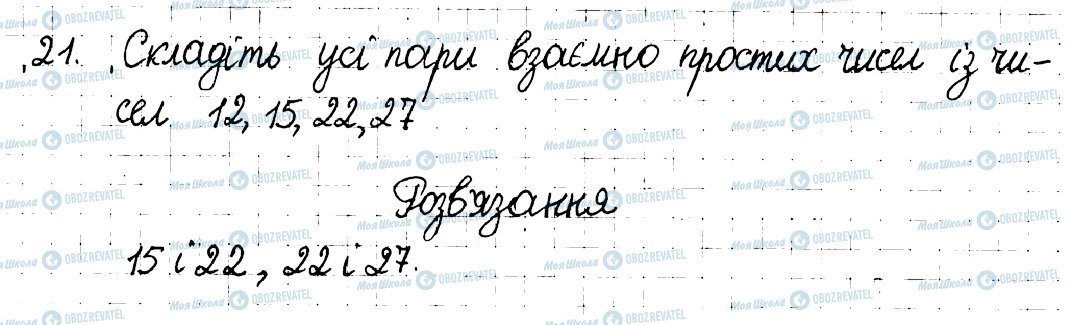 21. Складіть усі пари взаємно простих чисел із чи-
сел 12, 15, 22, 27
Розв'язання
15 і 22, 22 і 27.